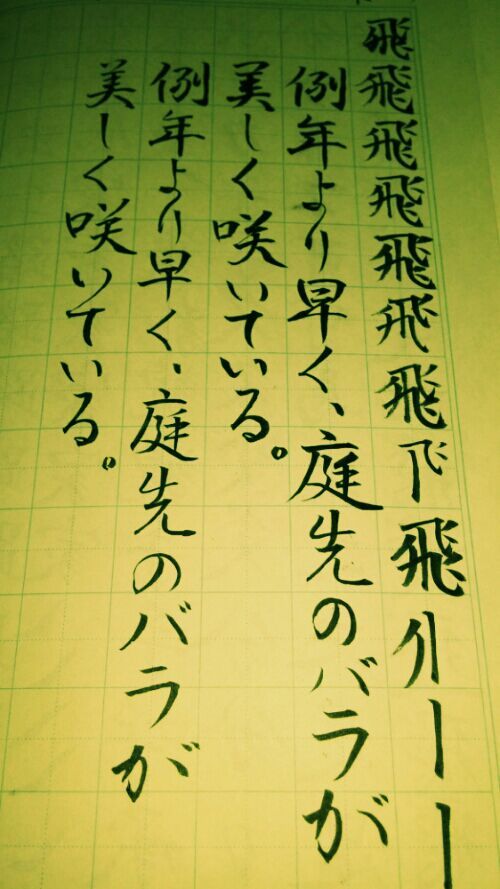 飛飛飛飛飛飛飛飛
例年より早く、庭先のバラが
美しく咲いている。
例年より早く、庭先のバラが
美しく咲いている。